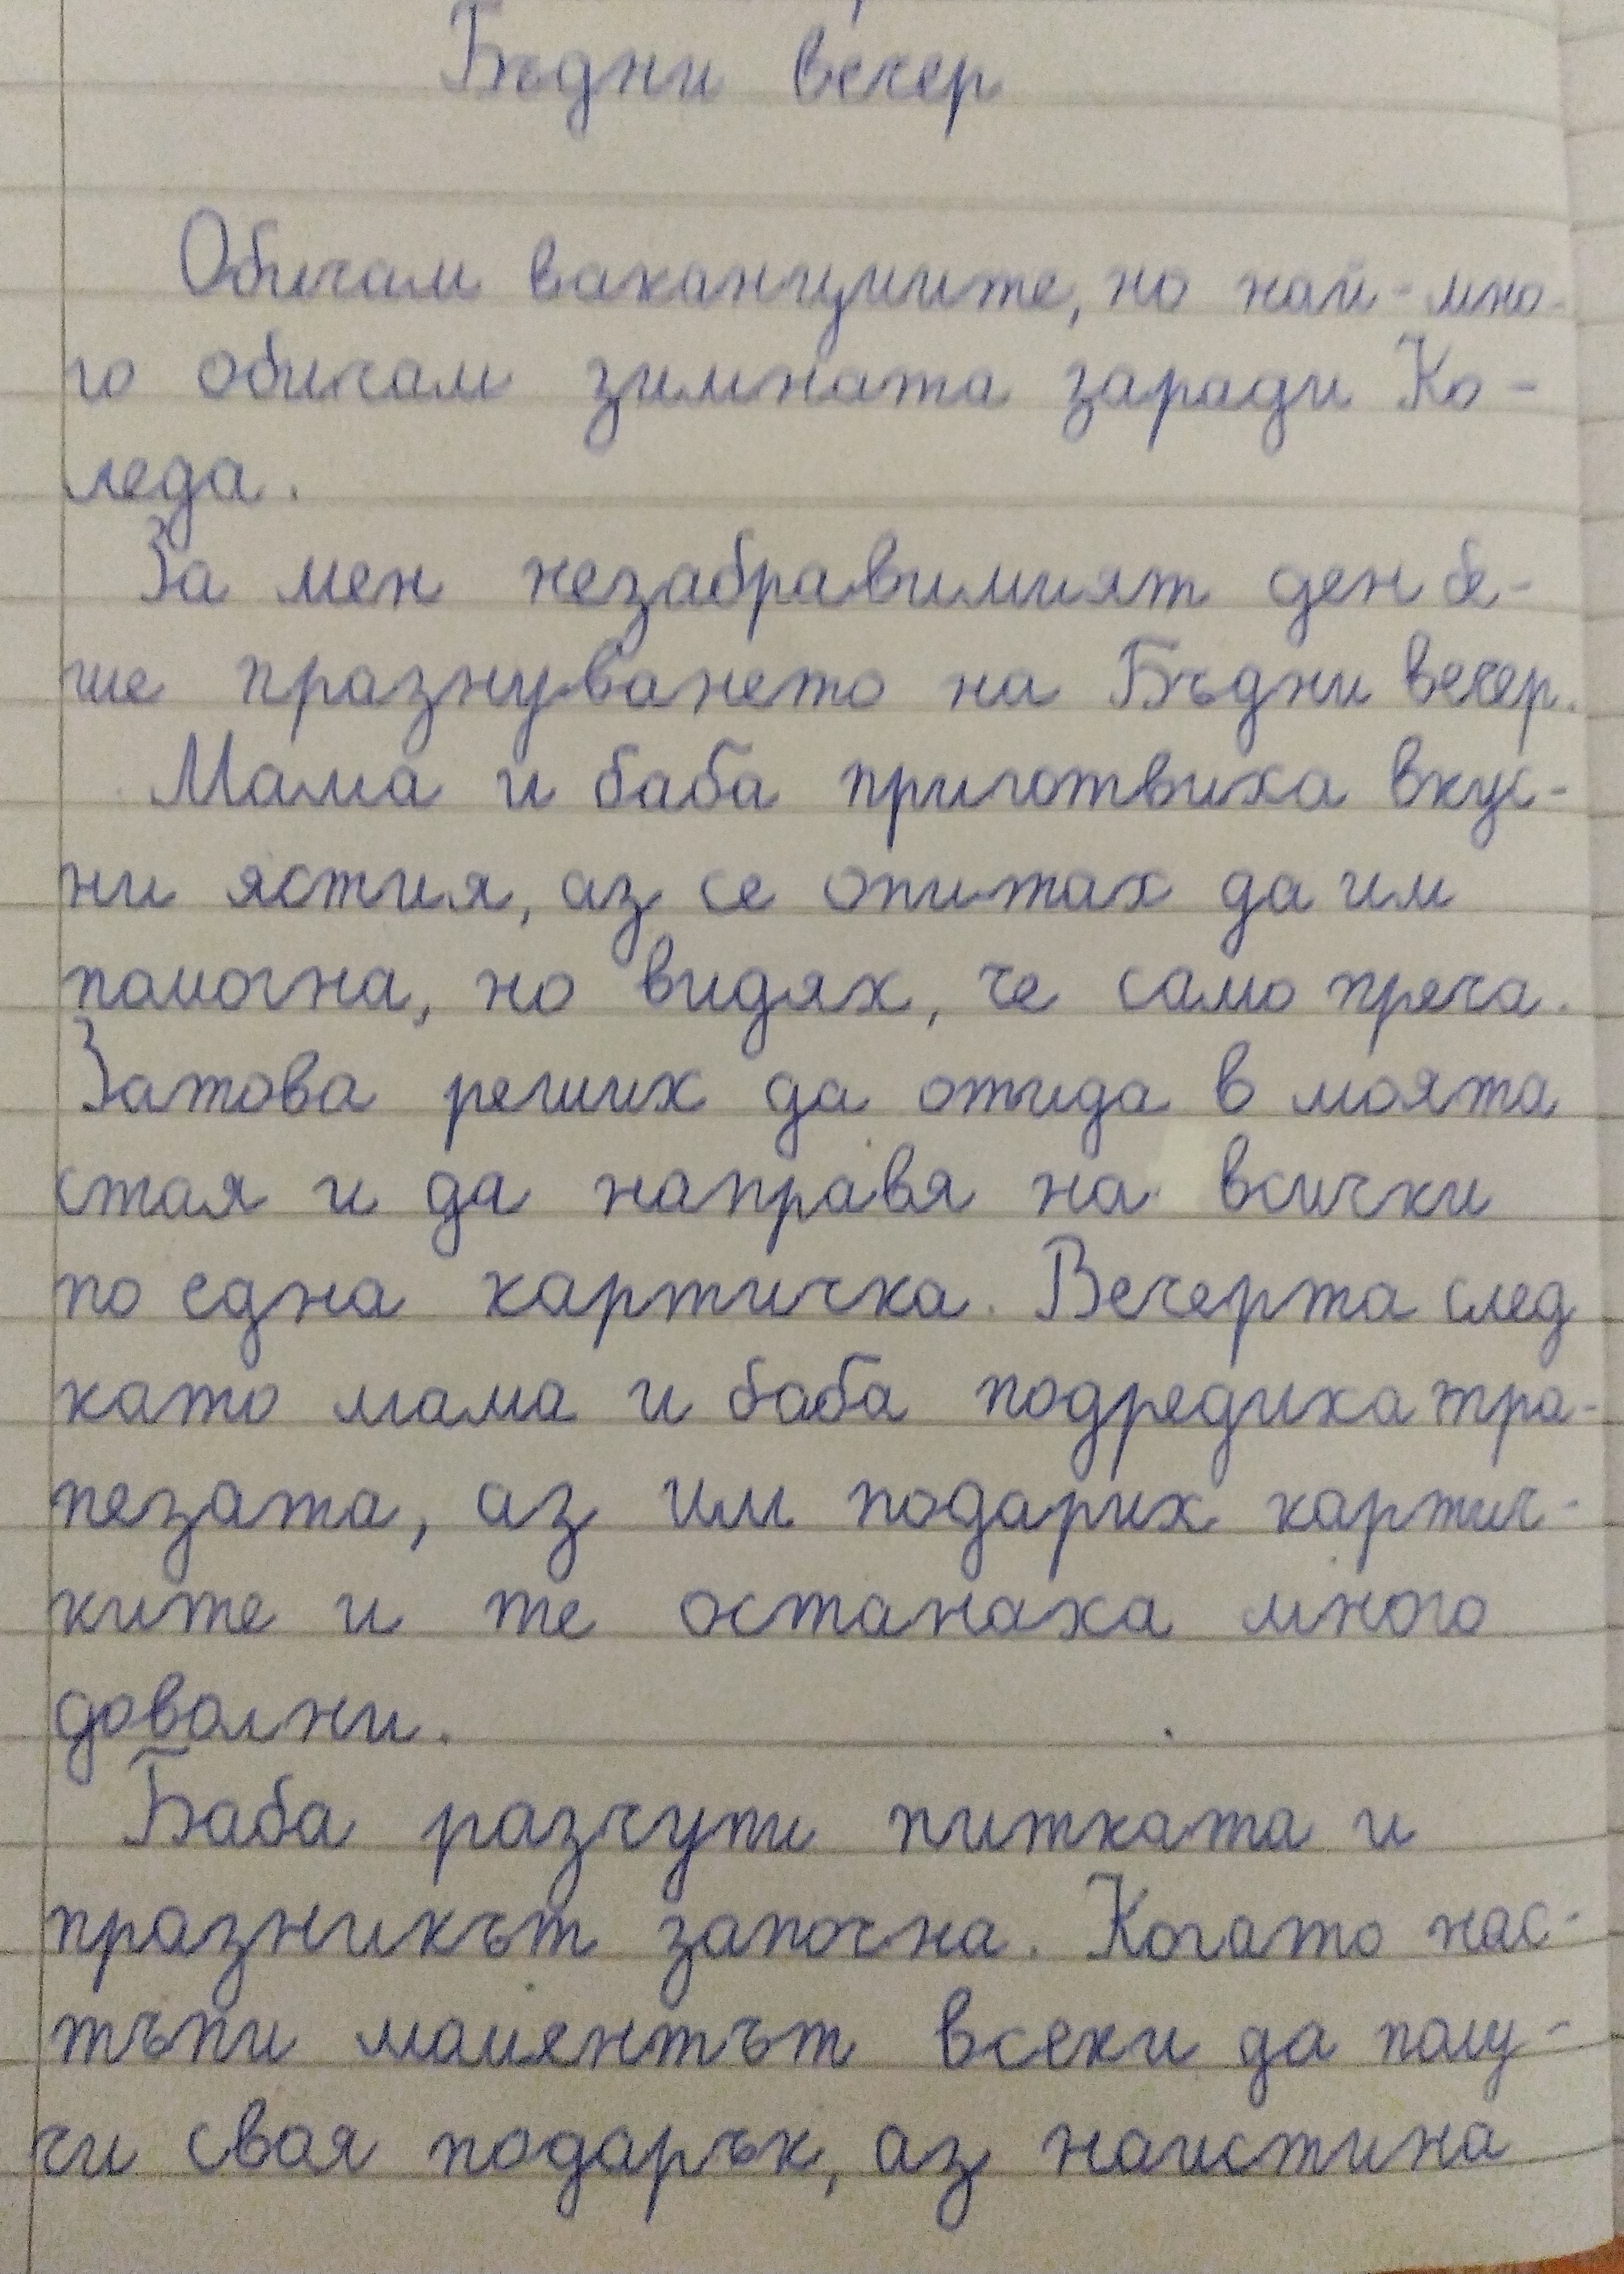 Бъдни вечер
Обичам ваканциите, но най-мно-
го обичам зимната заради Ко-
леда.
За мен незабравимият ден бе-
ше празнуването на Бъдни вечер.
Мама и баба приготвиха вкус-
ни ястия, аз се опитах да им
помогна, но видях, че само преча.
Затова реших да отида в моята
стая и да направя на всички
по една картичка. Вечерта след
като мама и баба подредиха тра-
пезата, аз им подарих картич-
ките и те останаха много
доволни.
Баба разчупи питката и
празникът започна. Когато нас-
тъпи моментът всеки да полу-
чи своя подарък, аз наистина